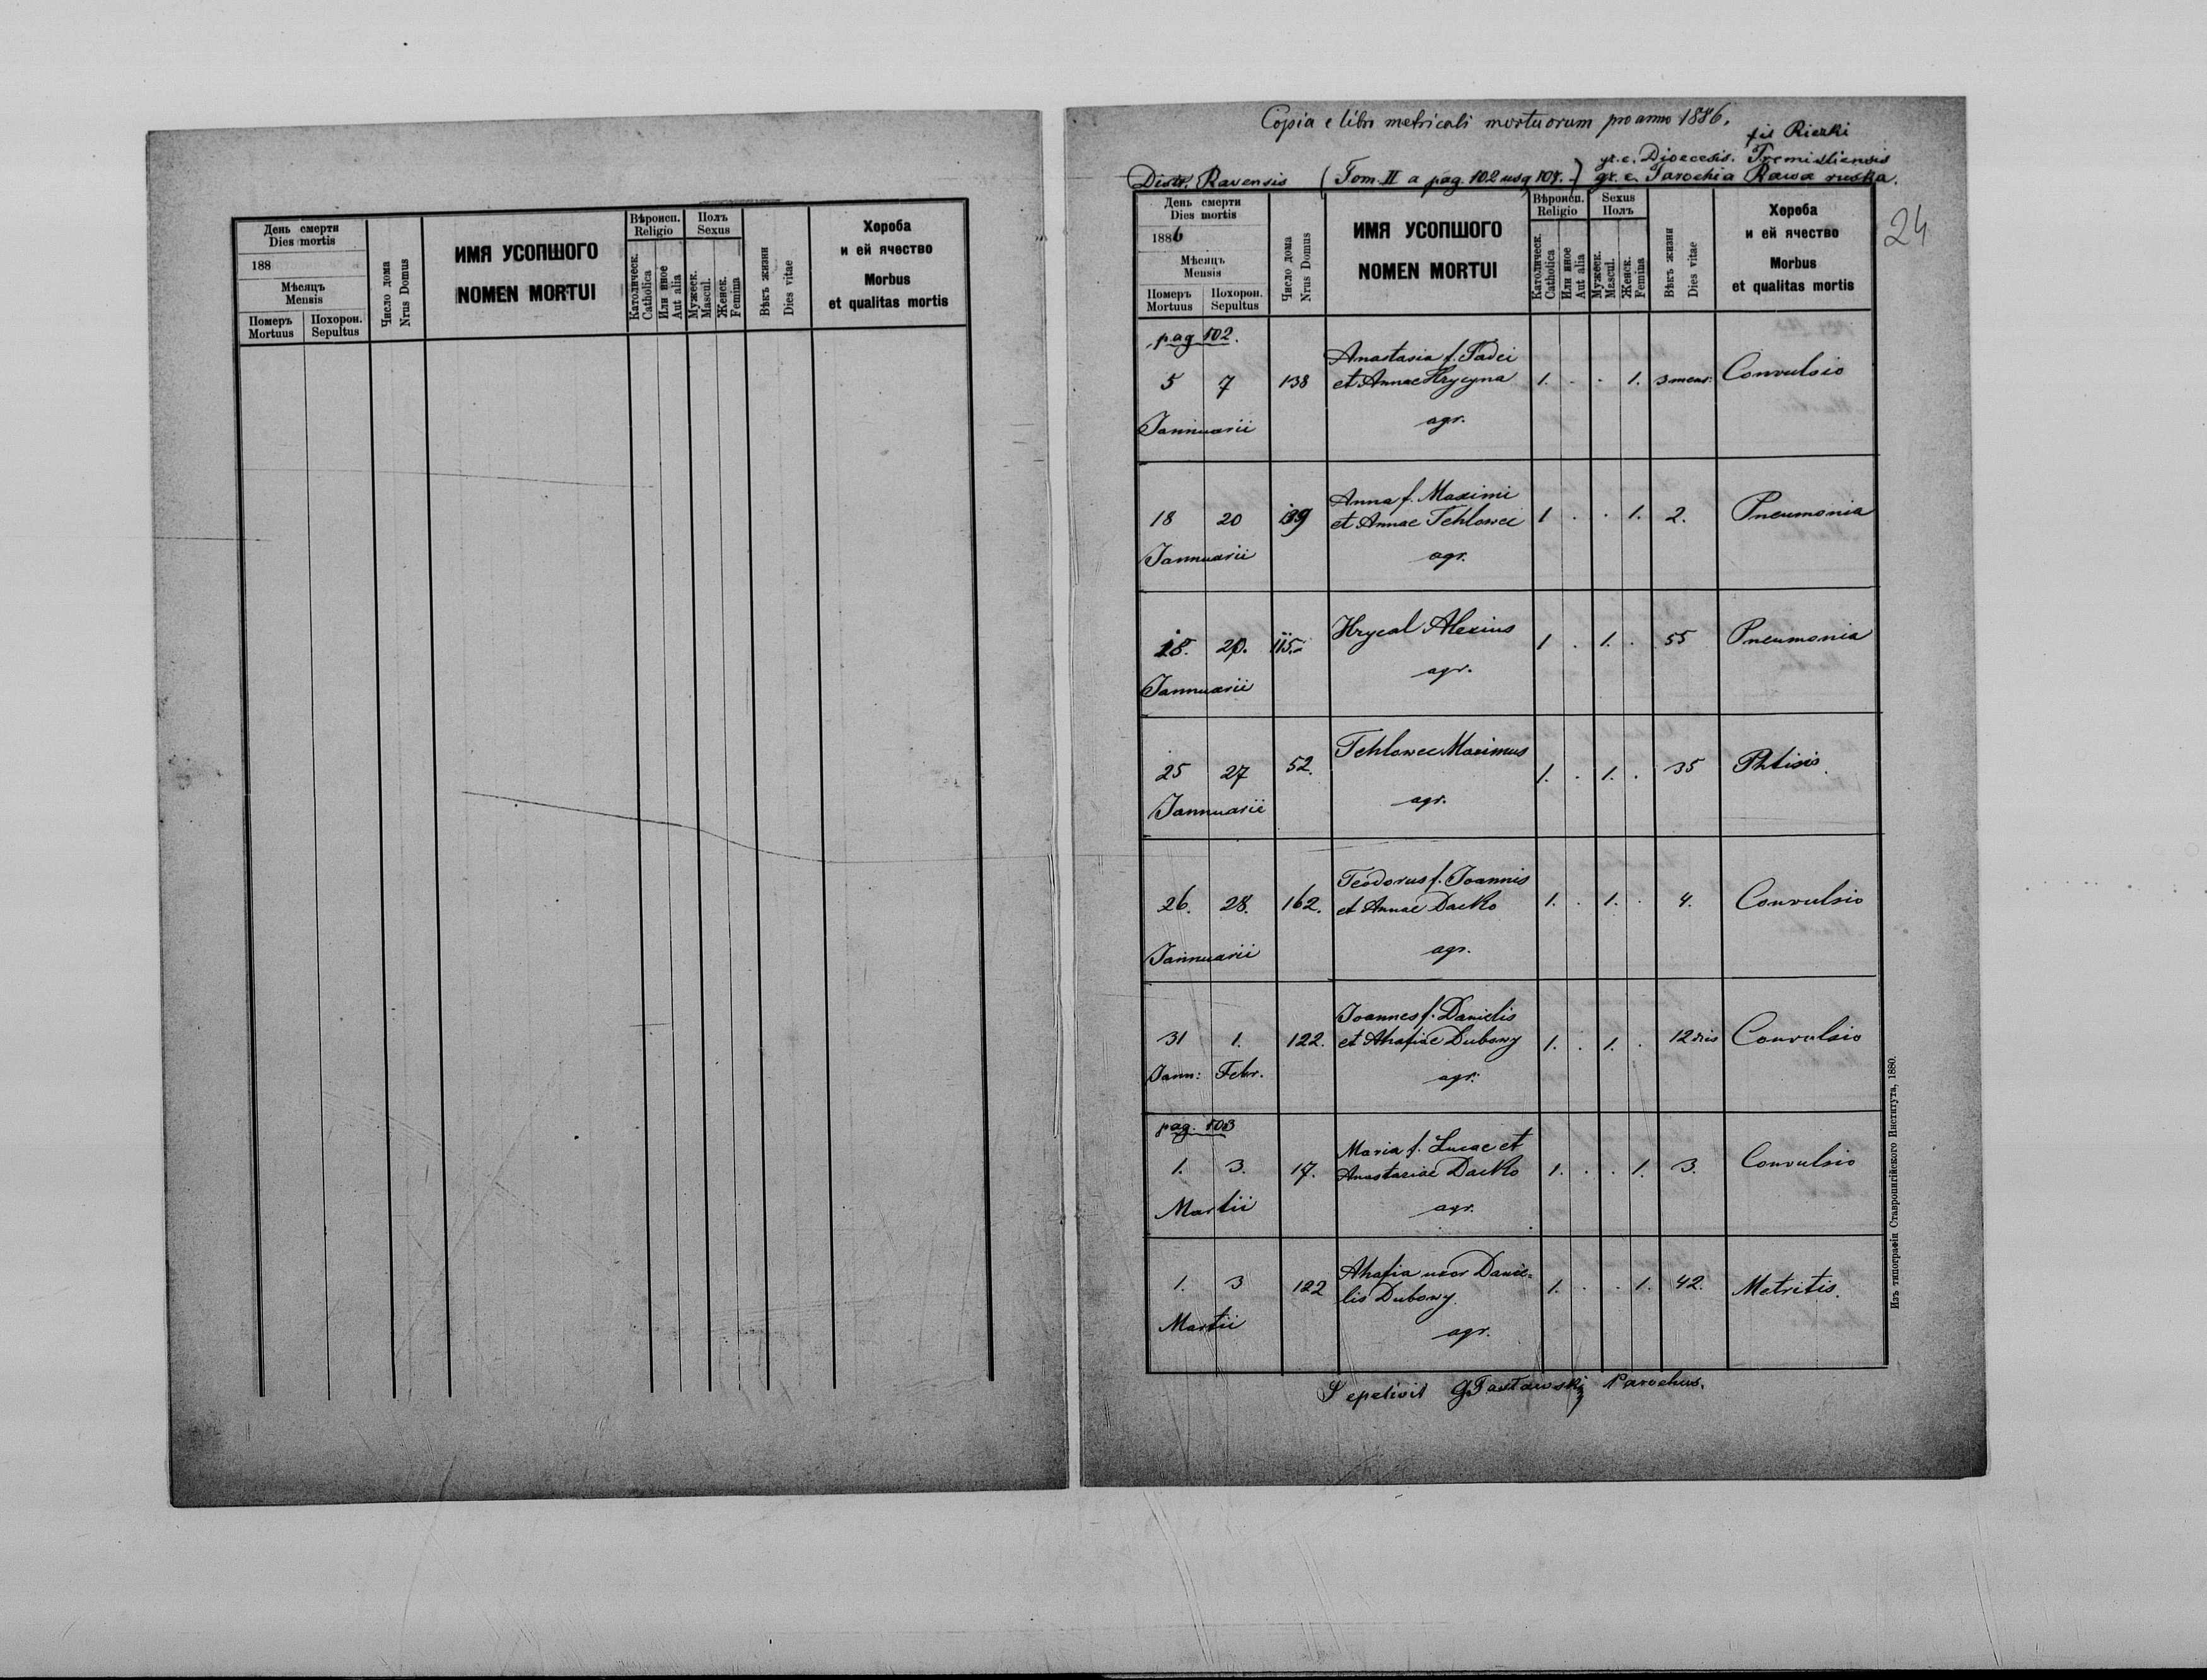 День смерти
Dies mortis
188
Мѣсяцъ
Mensis
Померъ
Mortuus
Похорон.
Sepultus
Число дома
Nrus Domus
ИМЯ УСОПШОГО
NOMEN MORTUI
Вѣроисп.
Religio
Католическ.
Catholica
Или иное
Aut alia
Полъ
Sexus
Мужеск.
Mascul.
Женск.
Femina
Вѣкъ жизни
Dies vitae
Хороба
и ей ячество
Morbus
et qualitas mortis
Copia e libri metricali mortuorum pro anno 1886.
fil Rieczki
gr. c. Dioecesis. Premisliensis
Distr. Ravensis (Tom. II a pag. 102 usq 107.) gr. c. Parochia Rawa ruska.
24
День смерти
Dies mortis
1886
Мѣсяцъ
Mensis
Померъ
Mortuus
Похорон.
Sepultus
Число дома
Nrus Domus
ИМЯ УСОПШОГО
NOMEN MORTUI
Вѣроисп.
Religio
Католическ.
Catholica
Или иное
Aut alia
Sexus
Полъ
Мужеск.
Mascul.
Женск.
Femina
Вѣкъ жизни
Dies vitae
Хороба
и ей ячество
Morbus
et qualitas mortis
pag 102.
Anastasia f. Tadei
5 7 138 et Annae Hrycyna 1. . . 1. 3 mens: Convulsio
Jannuarii agr.
Anna f. Maximi
18 20 139 et Annae Tehlowec 1 . . 1. 2. Pneumonia
Jannuarii agr.
18. 20. 115. Hrycal Alexius 1 . 1. . 55 Pneumonia
Jannuarii agr.
25 27 52. Tehlowec Maximus 1. . 1. . 35 Phtisis.
Jannuarii agr.
Teodorus f. Joannis
26. 28. 162. et Annae Dacko 1. . 1. . 4. Convulsio
Jannuarii agr.
Joannes f. Danielis
31 1. 122. et Ahafiae Dubowy 1. . 1. . 12 dies Convulsio
Jann: Febr. agr.
pag. 103
Maria f. Lucae et
1. 3. 17. Anastasiae Dacko 1. . . 1. 3. Convulsio
Martii agr.
1. 3 122 Ahafia uxor Danie-
lis Dubowy. 1. . . 1. 42. Metritis.
Martii agr.
Sepelivit Parochus.
Изъ типографіи Ставропигійского Института, 1880.